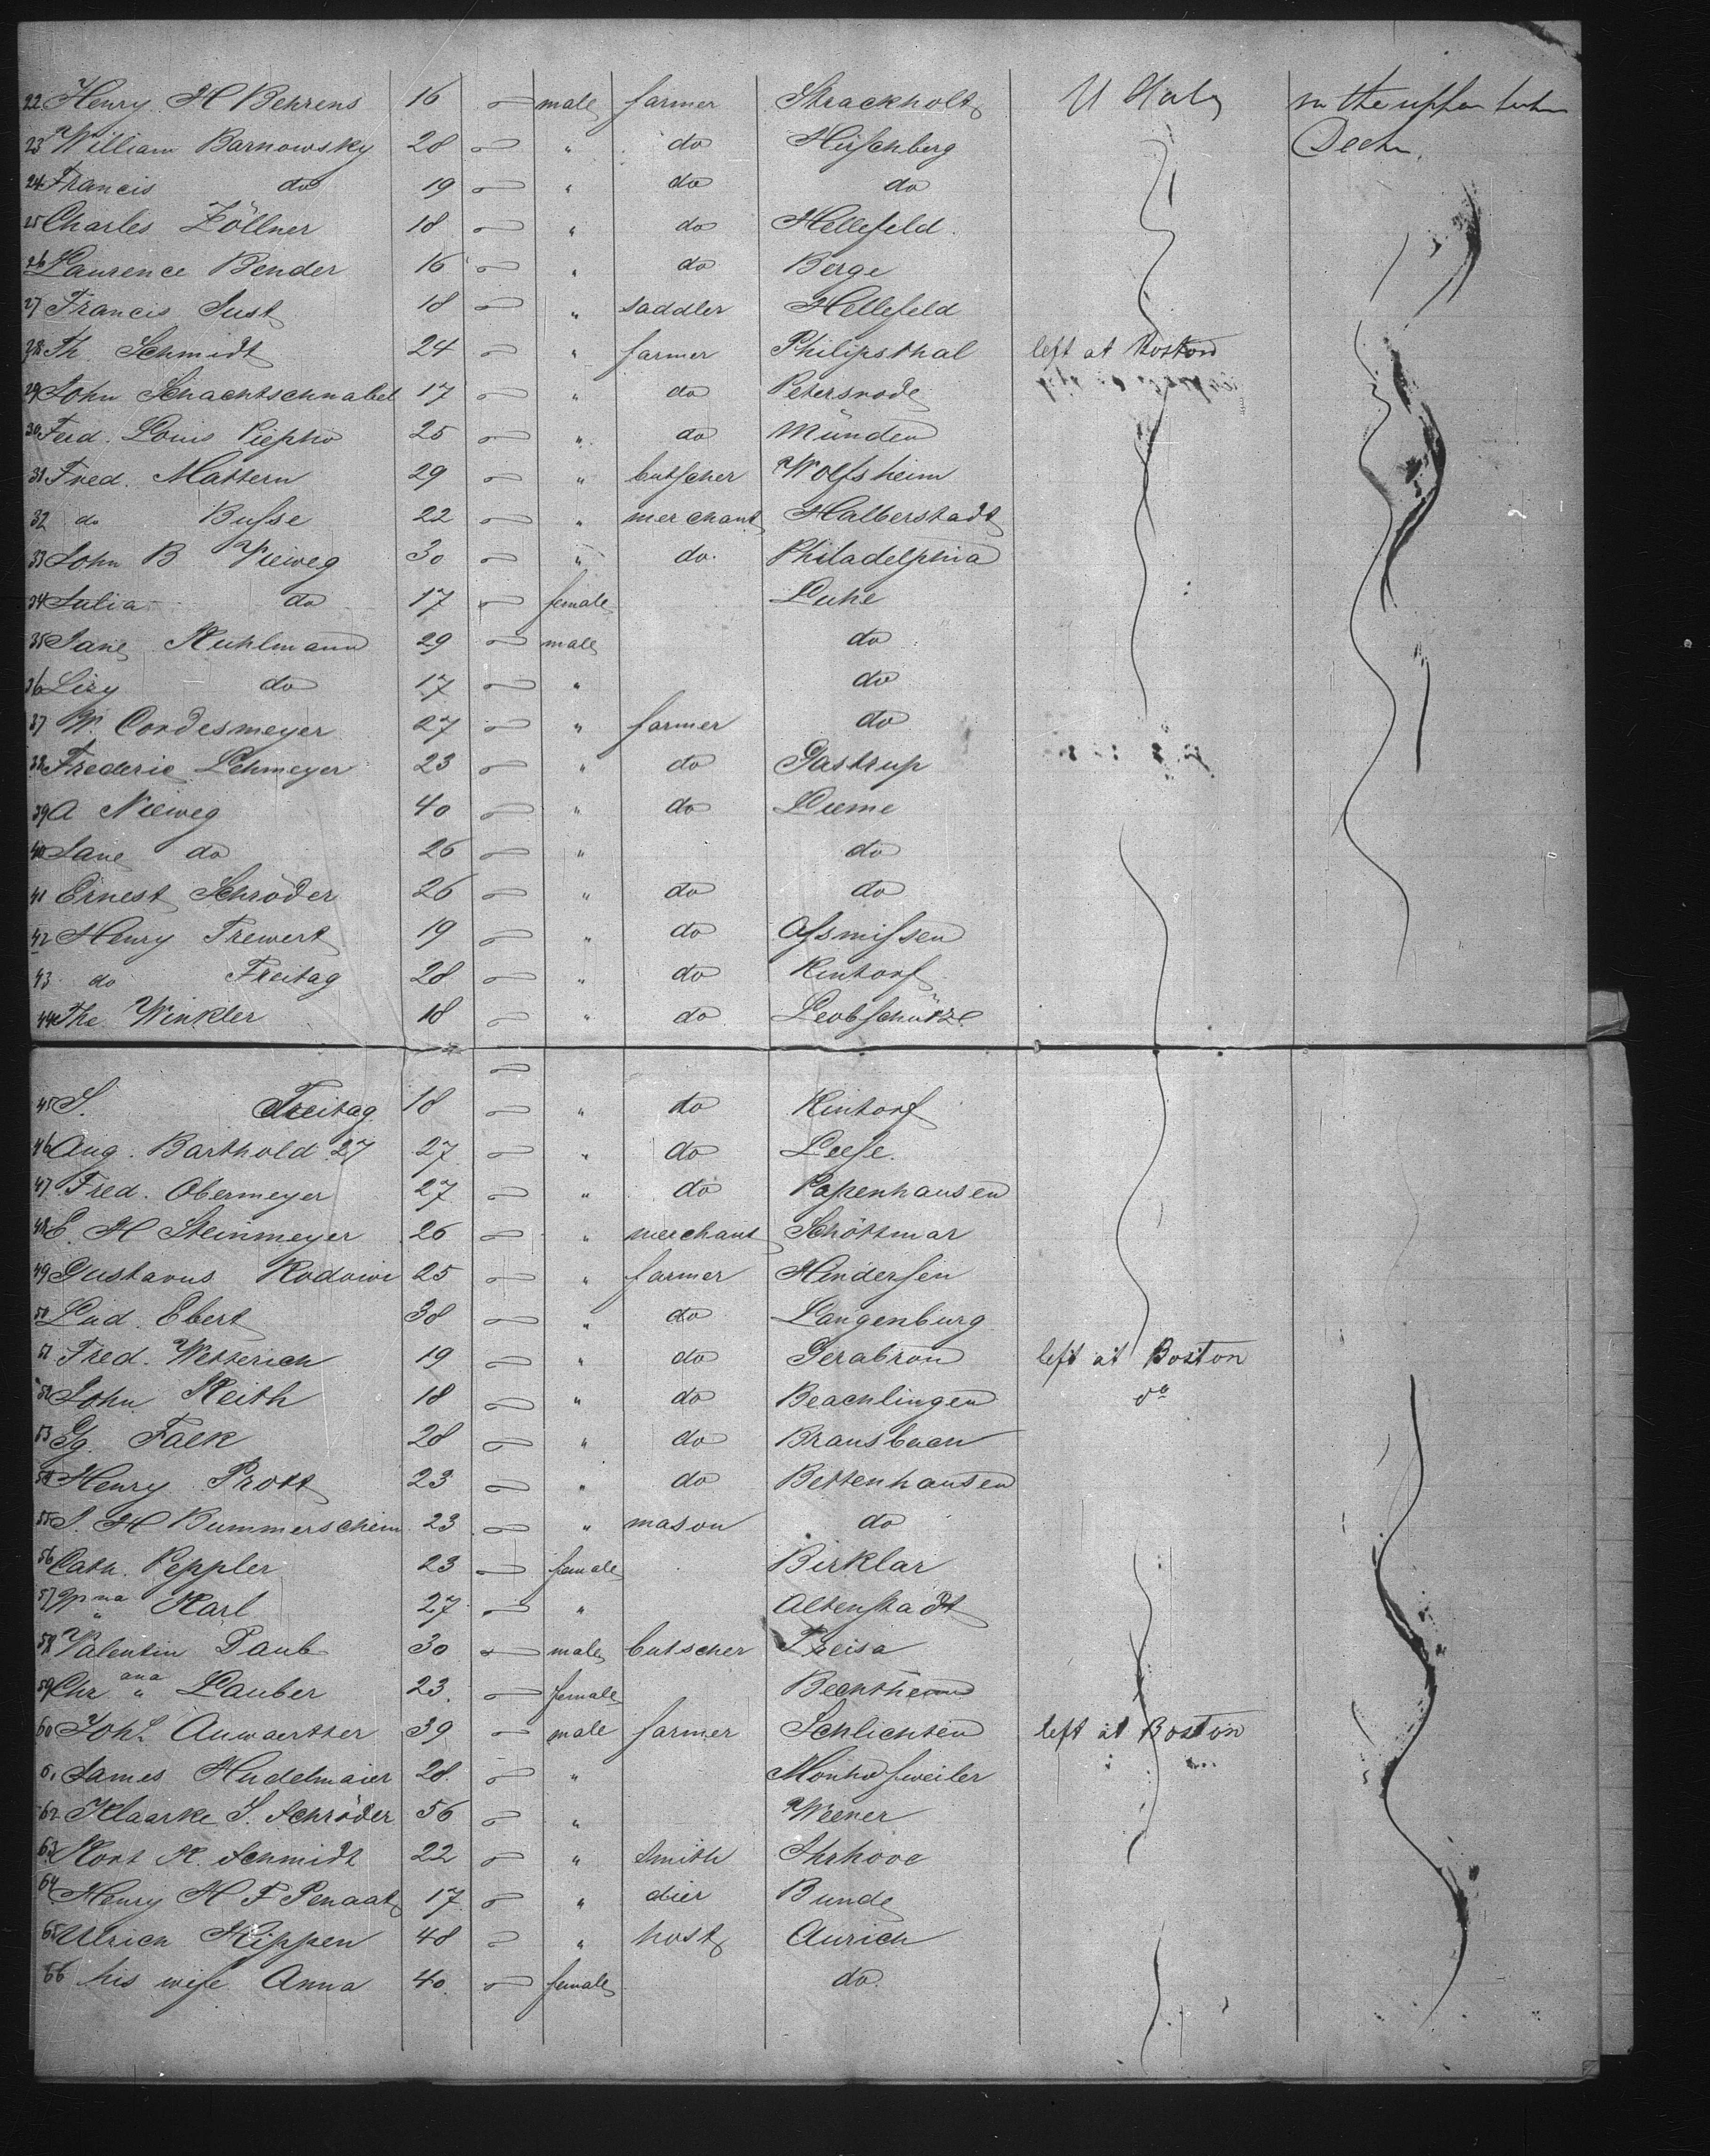 22 Henry H Behrens 16 male farmer Strackholt U States in the upper between
23 William Barnowsky 28 " do Hirschberg Decks.
24 Francis do 19 " do do
25 Charles Zöllner 18 " do Hellefeld
26 Laurence Bender 16 " do Berge
27 Francis Just 18 " saddler Hellefeld
28 Th. Schmidt 24 " farmer Philipsthal left at Boston
29 John Schachtschnabel 17 " do Petersrode
30 Ferd. Louis Piepho 25 " do Münden
31 Fred. Mattern 29 " butscher Wolfsheim
32 do Busse 22 " merchant Halberstadt
33 John B Vieweg 30 " do. Philadelphia
34 Julia do 17 female Luhe
35 Jane Kuhlmann 29 male do
36 Lizy do 17 " do
37 W. Cordesmeyer 27 " farmer do
38 Frederic Lehmeyer 23 " do Gastrup
39 A Nieweg 40 " do Lieme
40 Jane do 26 " do
41 Ernest Schröder 26 " do do
42 Henry Trewert 19 " do Assmissen
43 do Freitag 28 " do Kintorf
44 The Winkler 18 " do Leobschütz
45 S. Freitag 18 " do Kintorf
46 Aug. Barthold 27 27 " do Leese.
47 Fred. Obermeyer 27 " do Papenhausen
48 E. H Steinmeyer 26 " merchant Schöttmar
49 Gustavus Rodowi 25 " farmer Hindersen
50 Lud. Ebert 38 " do Langenburg
51 Fred. Wetterich 19 " do Gerabron left at Boston
52 John Keith 18 " do Beachlingen do
53 Gg. Falk 28 " do Bransbach
54 Henry Prott 23 " do Bettenhausen
55 J. H Bummerscheim 23 " mason do
56 Cath. Peppler 23 female Birklar
57 Karl 27 " Altenstadt
58 Valentin Daub 30 male butscher Treisa
59 Chr ana " Lauber 23. female Bechtheim
60 Joh. Auwaerther 39 male farmer Schlichten left at Boston
61 James Hudelmaier 28. " Mönhofweiler
62 Klaarke J. Schröder 56 " Weener
63 Kort K. Schmidt 22 " smith Ihrhove
64 Henry H F Penaat 17 " dier Bunde
65 Ulrich Hippen 48 " host Aurich
66 his wife Anna 40. female do.